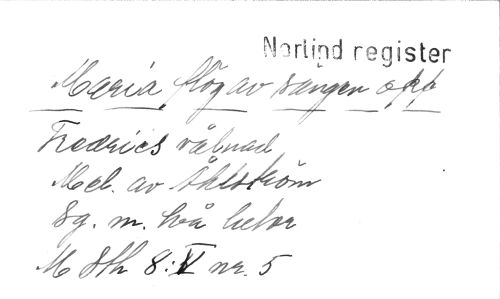 Norlind register
Maria flög av sängen opp
Fredrics vålnad
Mel. av Åhlström
Sg. m. två
M Sth 8:V nr. 5